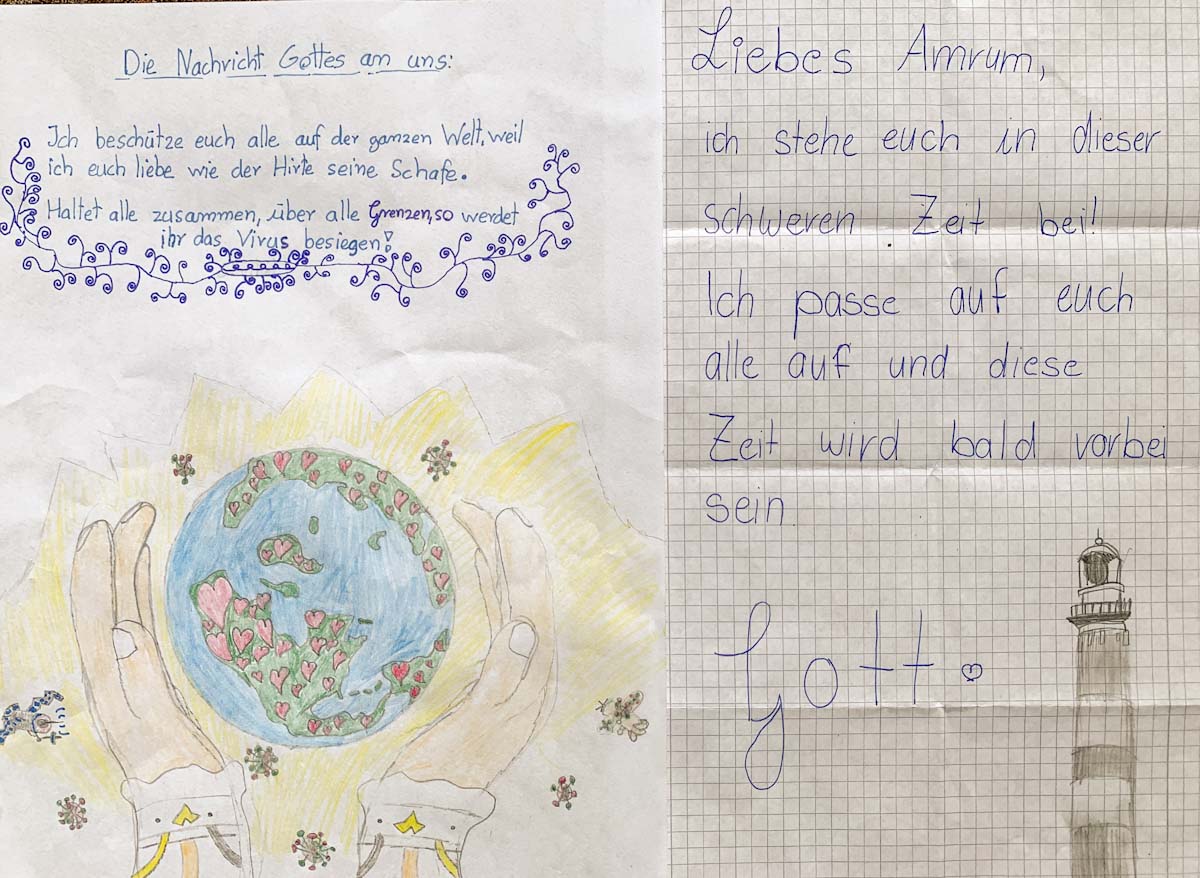 Die Nachricht Gottes an uns:
Ich beschütze euch alle auf der ganzen Welt, weil
ich euch liebe wie der Hirte seine Schafe.
Haltet alle zusammen, über alle Grenzen, so werdet
ihr das Virus besiegen!
Liebes Amrum,
ich stehe euch in dieser
schweren Zeit bei!
Ich passe auf euch
alle auf und diese
Zeit wird bald vorbei
sein
Gott